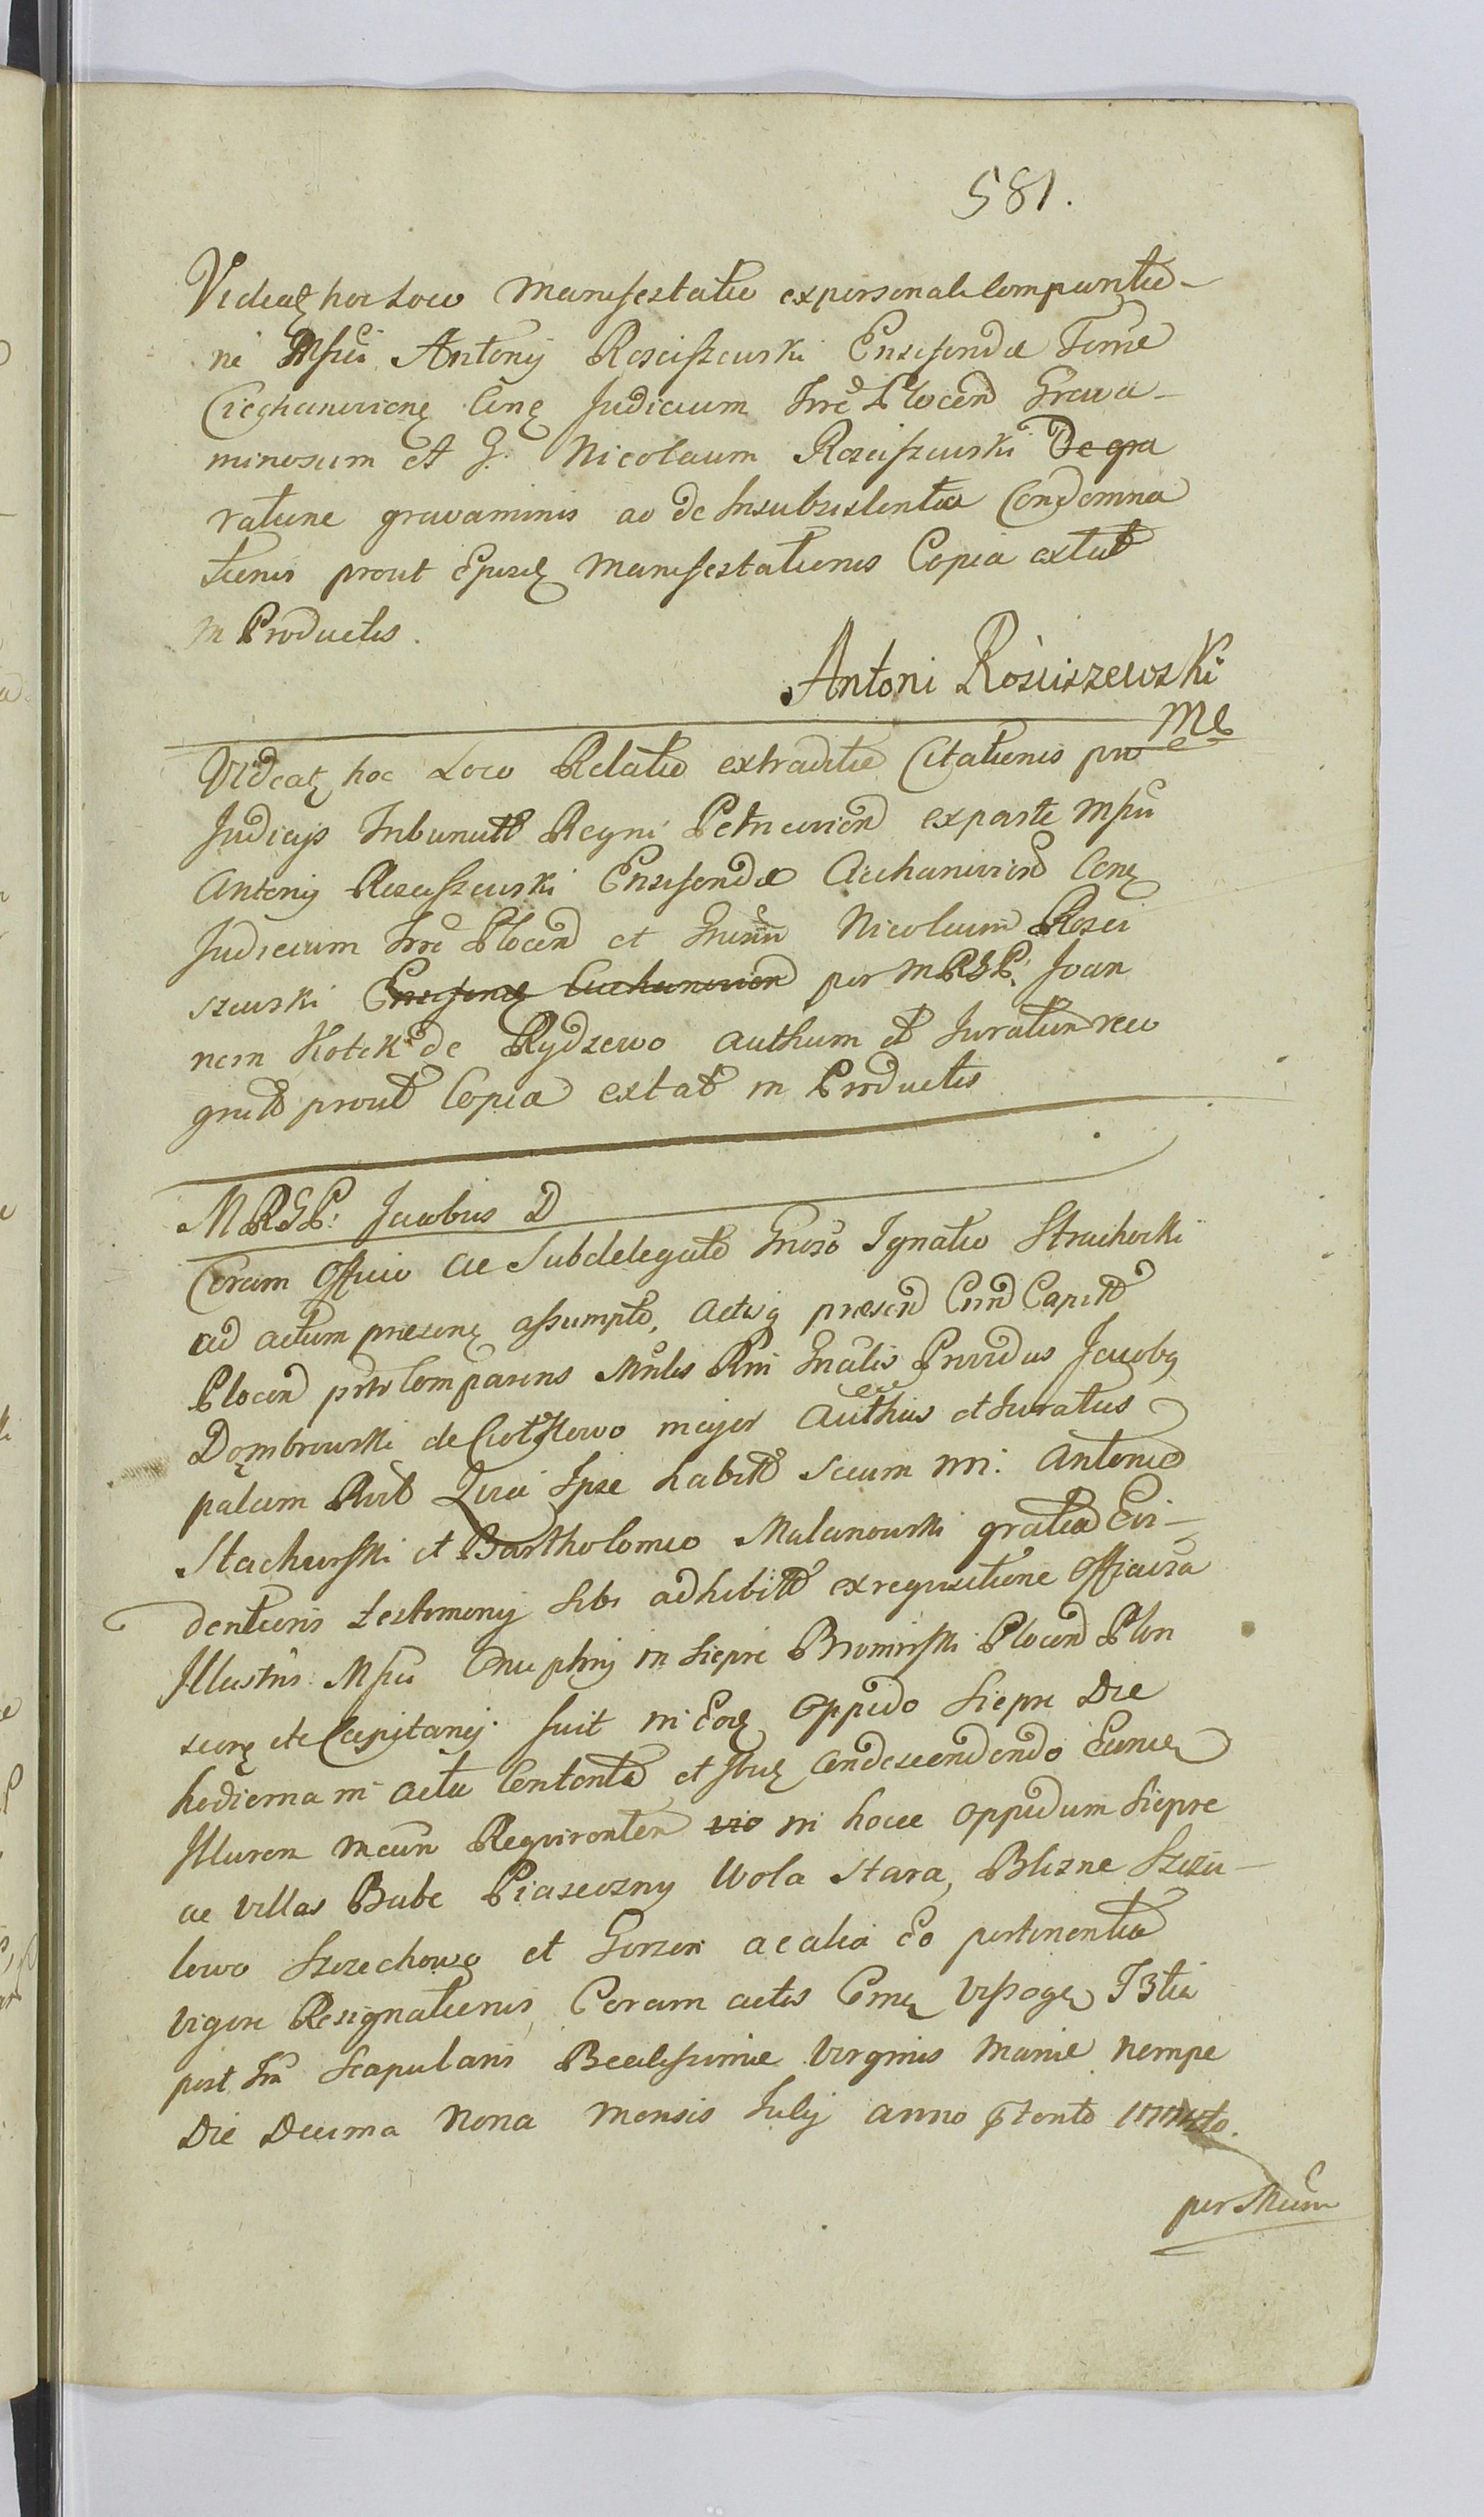 581.
Videatʒ hoc Loco Manifestatio ex personali Comparitio-
ni Mfici Antonij Rosciszewski Ensiferidæ Terræ
Ciechanovienʒ Cirʒ Judicium Trrē Plocen Grava-
minosum et G. Nicolaum Rosciszewski De gra
ratione gravaminis ac de Insubsistentia Condemna
tionis prout Ejusdʒ Manifestationis Copia extat
in Productis.
Antoni Rosciszewski
MC
Videatʒ hoc Loco Relatio extraditæ Citationis pro
Judicijs Tribunalb Regni Petricovien ex parte Mfici
Antonij Rosciszewski Ensiferidæ Ciechanovien Conʒ
Judicium Trrē Plocen et Gnsum Nicolaum Rosci
szewski Ensiferʒ Ciechanovien per MRGP. Joan
nem Kotek de Rydzewo Authum et Juratum reco
gnitt prout Copia extat in Productis
MRGP: Jacobus D
Coram Officio ac Subdelegato Gnoso Ignatio Strachocki
ad actum præsenʒ assumpto, Actisqʒ præsen Crrn Capitt
Plocen prlr Comparens Mnlis Rni Gnalis Providus Jacobʒ
Dombrowski de major Authus et Juratus
palam Rvit Quia Ipse habitt secum nn: Antonio
Stachurski et Bartholomeo Malanowski gratia Evi-
dentioris testimonij sibi adhibitt ex requisitione Officiosa
Illustris Mfici Onuphrij in Siepre Bromirski Plocen Plon
scorʒ etc Capitanej. fuit in Eodʒ Oppido Siepre Die
hodierna in Actu Contenta et ibidʒ Condescendendo Eumdʒ
Illurem Mcum Requirenten vio in hocce Oppidum Siepre
ac Villas Babe Piaseczny Wola Stara, Blizne Szczu-
lowo Szczechowo et Gorzen ac alia Eo pertinentia
vigore Resignationis Coram actis
post Scapularis Beatissimæ Virginis Mariæ nempe
Die Decima Nona Mensis Julij anno
per Mcum